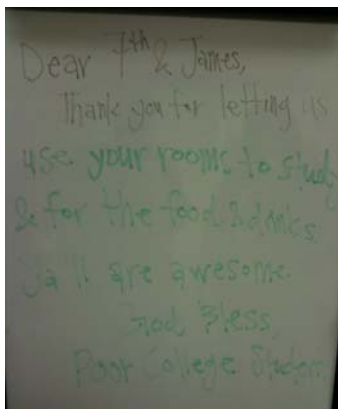 Dear 7th & James,
Thank you for letting us
use your rooms to study
& for the food & drinks.
Ya'll are awesome.
God Bless,
Poor College Students